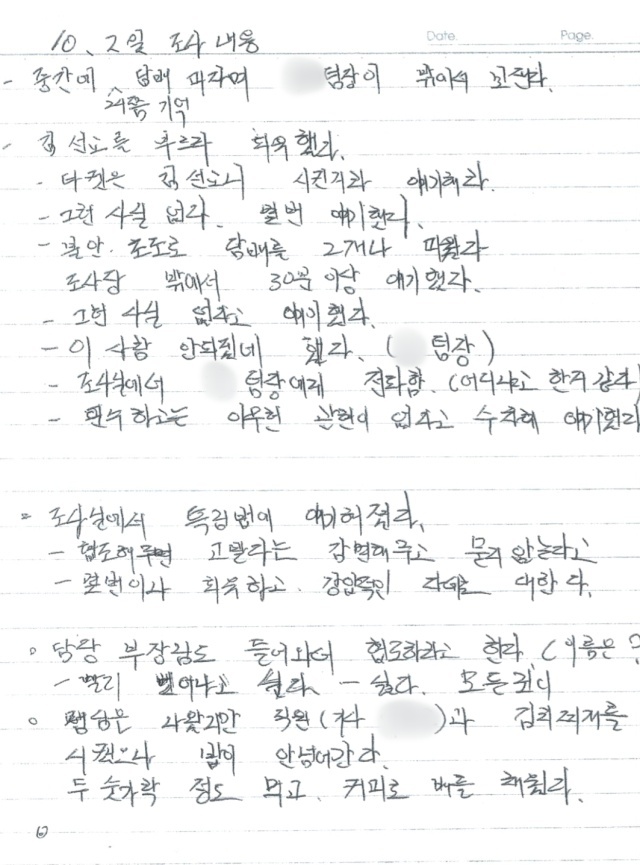 Date. Page.
10、2일 조사 내용
- 중간에 담배 피자며 팀장이 밖에서 꼬신다.
2시쯤 기억
- 김선교를 부르라 회유했다.
- 타켓은 김선교니 시킨거라 얘기해라.
- 그런 사실 없다. 몇번 얘기했다.
- 불안. 초조로 담배를 2개나 피웠다
조사장 밖에서 30분 이상 얘기했다.
- 그런 사실 없다고 얘기했다.
- 이 사람 안되겠네 했다. ( 팀장)
- 조사실에서 팀장에게 전화함. (어디냐고 한거 같다)
- 군수하고는 아무런 관련이 없다고 수차례 얘기했다
= 조사실에서 특검법에 얘기해줬다.
- 협조해주면 고발자는 감면해주고 묻지 않는다고
- 몇번이나 회유하고. 강압적인 태도로 대한다.
○ 담당 부장검도 들어와서 협조하라고 한다. (이름은?)
- 빨리 벗어나고 싶다 - 싶다. 모든것이
○ 은 나왔지만 직원( )과 김치찌개를
시켰으나 밥이 안넘어간다.
두 숟가락 정도 먹고. 커피로 배를 채웠다.